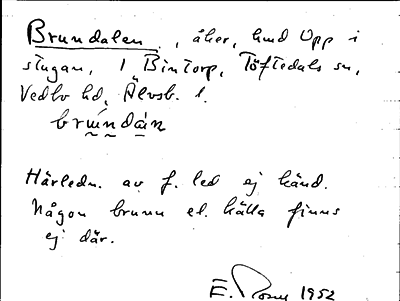 Brundalen, åker, hmd Opp i
stugan, 1 Bintorp, Töftedals sn,
Vedbo hd, Älvsb. l.
brúndàn
Härledn. av f. led ej känd.
Någon brunn el. källa finns
ej där.
E. 1952